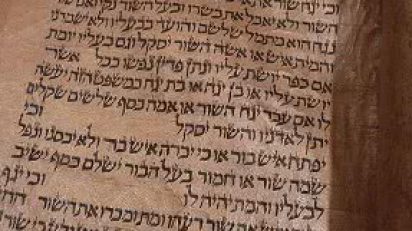 השור ולא יאכל את בשרו ובעל השור נקי ואם שור
נגח הוא מתמל שלשם והועד בבעליו ולא ישמרנו
והמית איש או אשה השור יסקל וגם בעליו יומת
אם כפר יושת עליו ונתן פדין נפשו ככל אשר
יושת עליו או בן יגח או בת יגח כמשפט הזה יעשה
לו אם עבד יגח השור או אמה כסף שלשים שקלים
יתן לאדניו והשור יסקל וכי
יפתח איש בור או כי יכרה איש בר ולא יכסנו ונפל
שמה שור או חמור בעל הבור ישלם כסף ישיב
לבעליו והמת יהיה לו וכי יגף
שור איש את שור רעהו ומת ומכרו את השור החי